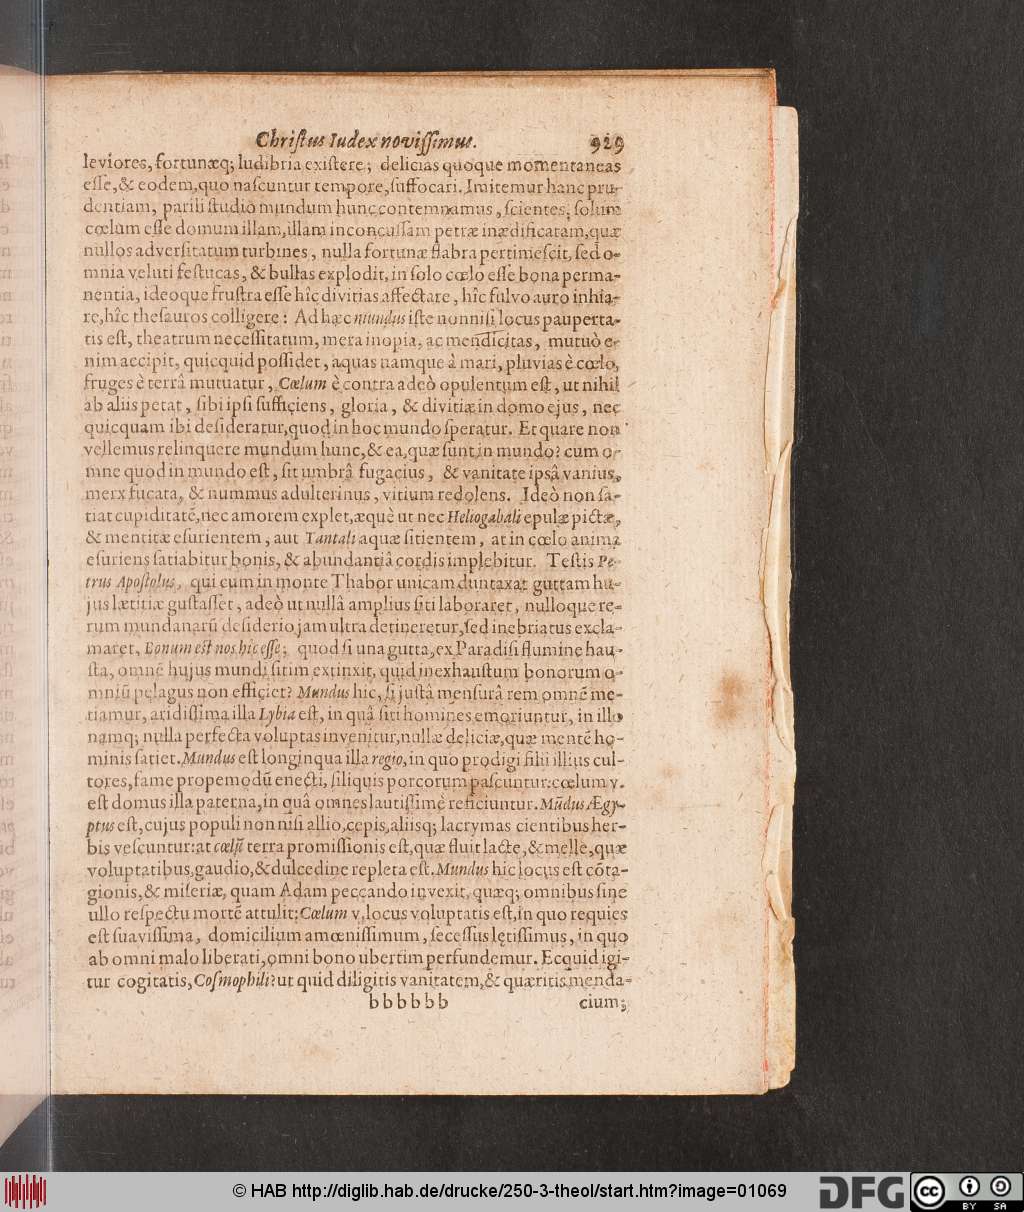 Christus Iudex novissimus. 929
leviores, fortunæq; ludibria existere; delicias quoque momentaneas
esse, & eodem, quo nascuntur tempore, suffocari. Imitemur hanc pru-
dentiam, parili studio mundum hunc contemnamus, scientes, solum
cœlum esse domum illam, illam inconcussam petræ inædificatam, quæ
nullos adversitatum turbines, nulla fortunæ flabra pertimescit, sed o-
mnia veluti festucas, & bullas explodit, in solo cœlo esse bona perma-
nentia, ideoque frustra esse hîc divitias affectare, hîc fulvo auro inhia-
re, hîc thesauros colligere: Ad hæc mundus iste non nisi locus pauperta-
tis est, theatrum necessitatum, mera inopia, ac mendicitas, mutuò e-
nim accipit, quicquid possidet, aquas namque à mari, pluvias è cœlo,
fruges è terrâ mutuatur, Cœlum è contra adeò opulentum est, ut nihil
ab aliis petat, sibi ipsi sufficiens, gloria, & divitiæ in domo ejus, nec
quicquam ibi desideratur, quod in hoc mundo speratur. Et quare non
vellemus relinquere mundum hunc, & ea, quæ sunt in mundo? cum o-
mne quod in mundo est, sit umbrâ fugacius, & vanitate ipsâ vanius,
merx fucata, & nummus adulterinus, vitium redolens. Ideò non sa-
tiat cupiditatē, nec amorem explet, æquè ut nec Heliogabali epulæ pictæ,
& mentitæ esurientem, aut Tantali aquæ sitientem, at in cœlo anima
esuriens satiabitur bonis, & abundantiâ cordis implebitur. Testis Pe-
trus Apostolus, qui cum in monte Thabor unicam duntaxat guttam hu-
jus lætitiæ gustasset, adeò ut nullâ amplius siti laboraret, nulloque re-
rum mundanarū desiderio jam ultra detineretur, sed inebriatus excla-
maret, Bonum est nos hic esse; quod si una gutta, ex Paradisi flumine hau-
sta, omnē hujus mundi sitim extinxit, quid inexhaustum bonorum o-
mniū pelagus non efficiet? Mundus hic, si justâ mensurâ rem omnē me-
tiamur, aridissima illa Lybia est, in quâ siti homines emoriuntur, in illo
namq; nulla perfecta voluptas invenitur, nullæ deliciæ, quæ mentē ho-
minis satiet. Mundus est longinqua illa regio, in quo prodigi filii illius cul-
tores, fame propemodū enecti, siliquis porcorum pascuntur: cœlum v.
est domus illa paterna, in quâ omnes lautissimè reficiuntur. Mūdus Ægy-
ptus est, cujus populi non nisi allio, cepis, aliisq; lacrymas cientibus her-
bis vescuntur: at cœlū terra promissionis est, quæ fluit lacte, & melle, quæ
voluptatibus, gaudio, & dulcedine repleta est. Mundus hic locus est cōta-
gionis, & miseriæ, quam Adam peccando invexit, quæq; omnibus sine
ullo respectu mortē attulit; Cœlum v, locus voluptatis est, in quo requies
est suavissima, domicilium amœnissimum, secessus lętissimus, in quo
ab omni malo liberati, omni bono ubertim perfundemur. Ecquid igi-
tur cogitatis, Cosmophili? ut quid diligitis vanitatem, & quæritis menda-
bbbbbb cium;
© HAB http://diglib.hab.de/drucke/250-3-theol/start.htm?image=01069 DFG cc BY SA